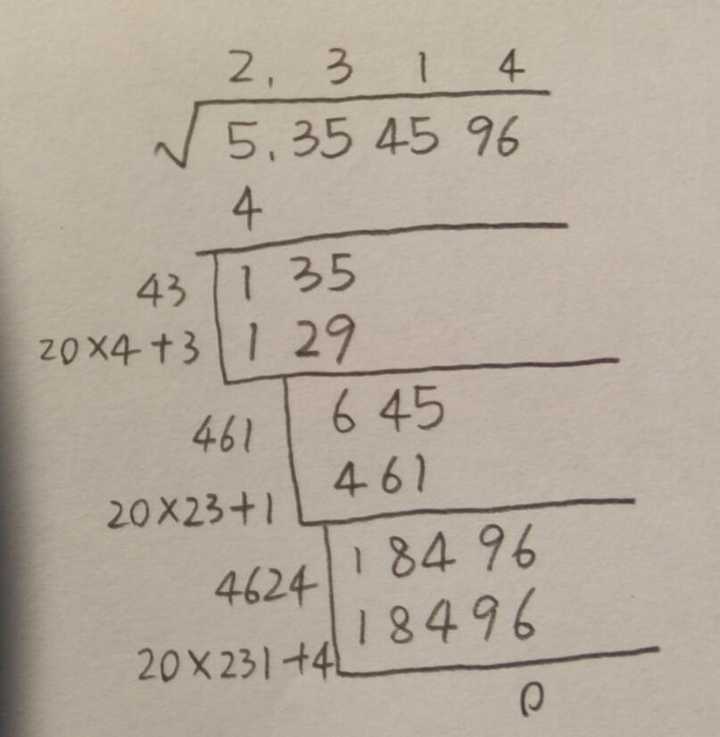 2. 3 1 4
√ 5.35 45 96
4
43 1 35
20×4+3 1 29
461 6 45
20×23+1 4 61
4624 1 84 96
20×231+4 1 84 96
0